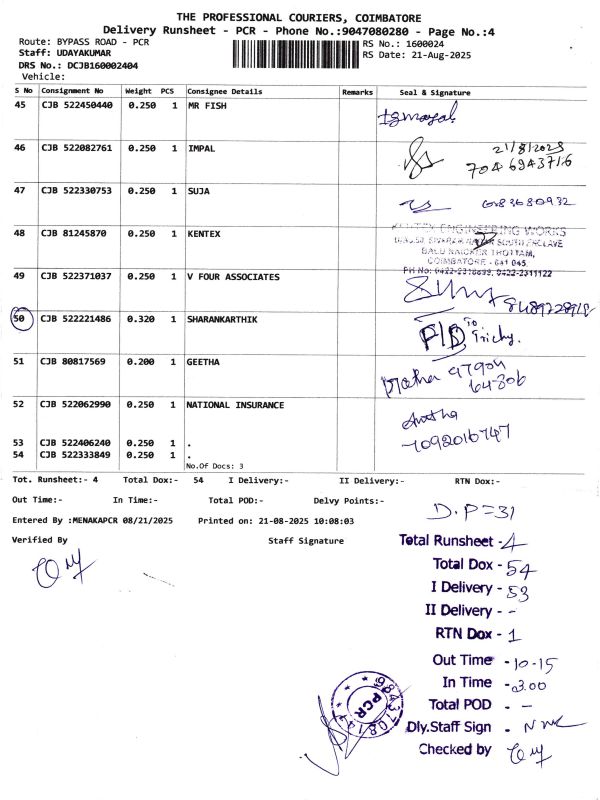 THE PROFESSIONAL COURIERS, COIMBATORE
Delivery Runsheet - PCR - Phone No.:9047080280 - Page No.:4
Route: BYPASS ROAD - PCR
RS No.: 1600024
Staff: UDAYAKUMAR
RS Date: 21-Aug-2025
DRS No.: DCJB160002404
Vehicle:
S No Consignment No Weight PCS Consignee Details Remarks Seal & Signature
45 CJB 522450440 0.250 1 MR FISH
46 CJB 522082761 0.250 1 IMPAL 21/8/2025
7046943716
47 CJB 522330753 0.250 1 SUJA
48 CJB 81245870 0.250 1 KENTEX
ENGINEERING WORKS
SOUTH ENCLAVE
BALU NAICKER THOTTAM,
COIMBATORE - 641 045.
PH No: 0422-2318699, 0422-2311122
49 CJB 522371037 0.250 1 V FOUR ASSOCIATES
50 CJB 522221486 0.320 1 SHARANKARTHIK
F/D to Trichy.
51 CJB 80817569 0.200 1 GEETHA
97904
64806
52 CJB 522062990 0.250 1 NATIONAL INSURANCE
7092016747
53 CJB 522406240 0.250 1 .
54 CJB 522333849 0.250 1 .
No.Of Docs: 3
Tot. Runsheet:- 4 Total Dox:- 54 I Delivery:- II Delivery:- RTN Dox:-
Out Time:- In Time:- Total POD:- Delvy Points:-
D.P=31
Entered By :MENAKAPCR 08/21/2025 Printed on: 21-08-2025 10:08:03
Verified By Staff Signature
Total Runsheet - 4
Total Dox - 54
I Delivery - 53
II Delivery - -
RTN Dox - 1
Out Time - 10-15
In Time - 3.00
Total POD - -
Dly.Staff Sign -
Checked by
PCR
9843708144